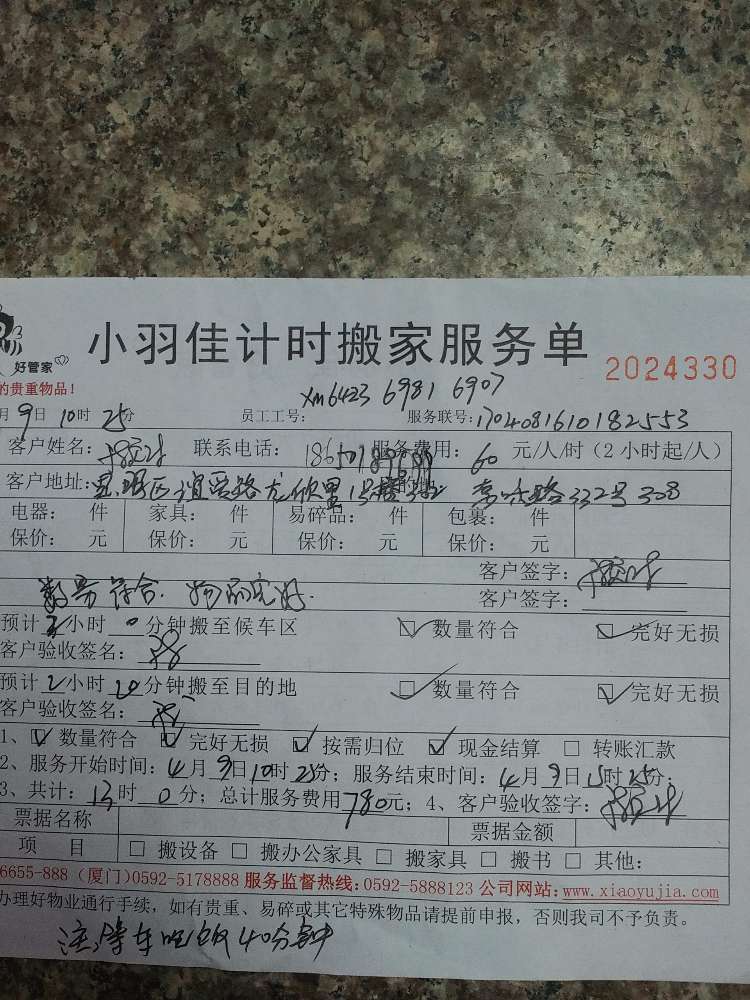 小羽佳计时搬家服务单
2024330
好管家
的贵重物品!
xm6423 6981 6907
月9日10时25分 员工工号: 服务联号:1704081610182553
客户姓名: 联系电话: 服务费用:60元/人/时(2小时起/人)
客户地址: 龙欣里1号楼 332号308
电器: 件 家具: 件 易碎品: 件 包裹: 件
保价: 元 保价: 元 保价: 元 保价: 元
客户签字:
数量符合.物品完好. 客户签字:
预计2小时0分钟搬至候车区 数量符合 完好无损
客户验收签名:
预计2小时20分钟搬至目的地 数量符合 完好无损
客户验收签名:
1、数量符合 完好无损 按需归位 现金结算 转账汇款
2、服务开始时间:4月9日10时25分;服务结束时间:4月9日15时25分;
3、共计:13时0分;总计服务费用780元;4、客户验收签字:
票据名称 票据金额
项 目 搬设备 搬办公家具 搬家具 搬书 其他:
6655-888 (厦门)0592-5178888 服务监督热线:0592-5888123 公司网站:www.xiaoyujia.com
办理好物业通行手续,如有贵重、易碎或其它特殊物品请提前申报,否则我司不予负责。
注:停车吃饭40分钟